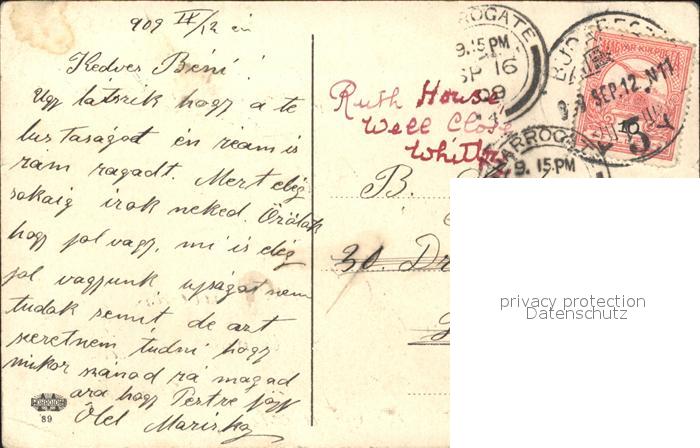 909 IX/12 én
Kedves Béni!
Ugy látszik hogy a te
lustaságod én reám is
rám ragadt. Mert elég
sokáig irok neked. Örülök
hogy jól vagy, mi is elég
jól vagyunk, ujságot nem
tudok semit de azt
szeretném tudni hogy
mikor szánod rá magad
ara hogy Pestre jöjj
Ölel Mariska
89
Ruth House
Well Close
B.
30. Dr
HARROGATE
9.15 PM
SP 16
09
BUDAPEST
909 SEP. 12. N 11
MAGYAR KIR. POSTA
HARROGATE
9.15 PM
privacy protection
Datenschutz